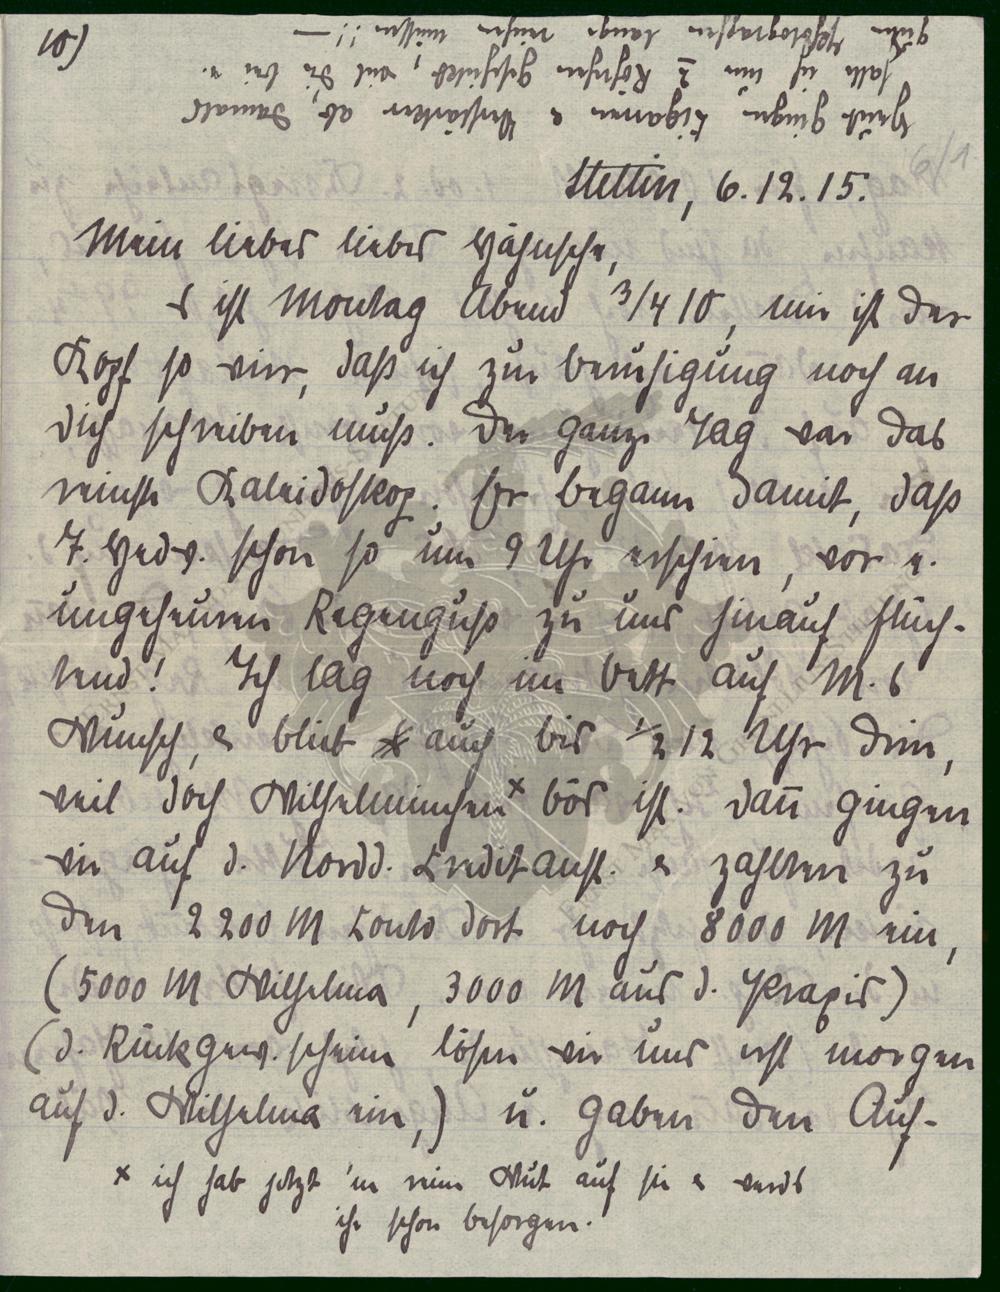 10)
Heut gingen Cigarren & Verstärker ab, damals
hatte ich nur 2 Röhrchen geschickt, mit die bei e.
guten Photographen lange reichen müssen !! —
6/1
Stettin, 6.12.15.
Mein lieber lieber Hähnsche,
s ist Montag Abend 3/4 10, mir ist der
Kopf so wirr, daß ich zur beruhigung noch an
dich schreiben muß. Der ganze Tag war das
reinste Kaleidoskop. Er begann damit, daß
F. Hedw. schon so um 9 Uhr erschien, vor e.
ungeheuren Regenguß zu uns hinauf flüch-
tend! Ich lag noch im bett auf M.s
Wunsch, & blieb auch bis 1/2 12 Uhr drin,
weil doch Wilhelminchen x bös ist. dan̄ gingen
wir auf d. Nordd. Creditanst. & zahlten zu
den 2200 M Conto dort noch 8000 M ein,
(5000 M Wilhelma, 3000 M aus d. Praxis)
(d. Rückgew. scheine lösen wir uns erst morgen
auf d. Wilhelma ein,) u. gaben den Auf-
x ich hab jetzt 'ne reine Wut auf sie & werds
ihr schon besorgen.